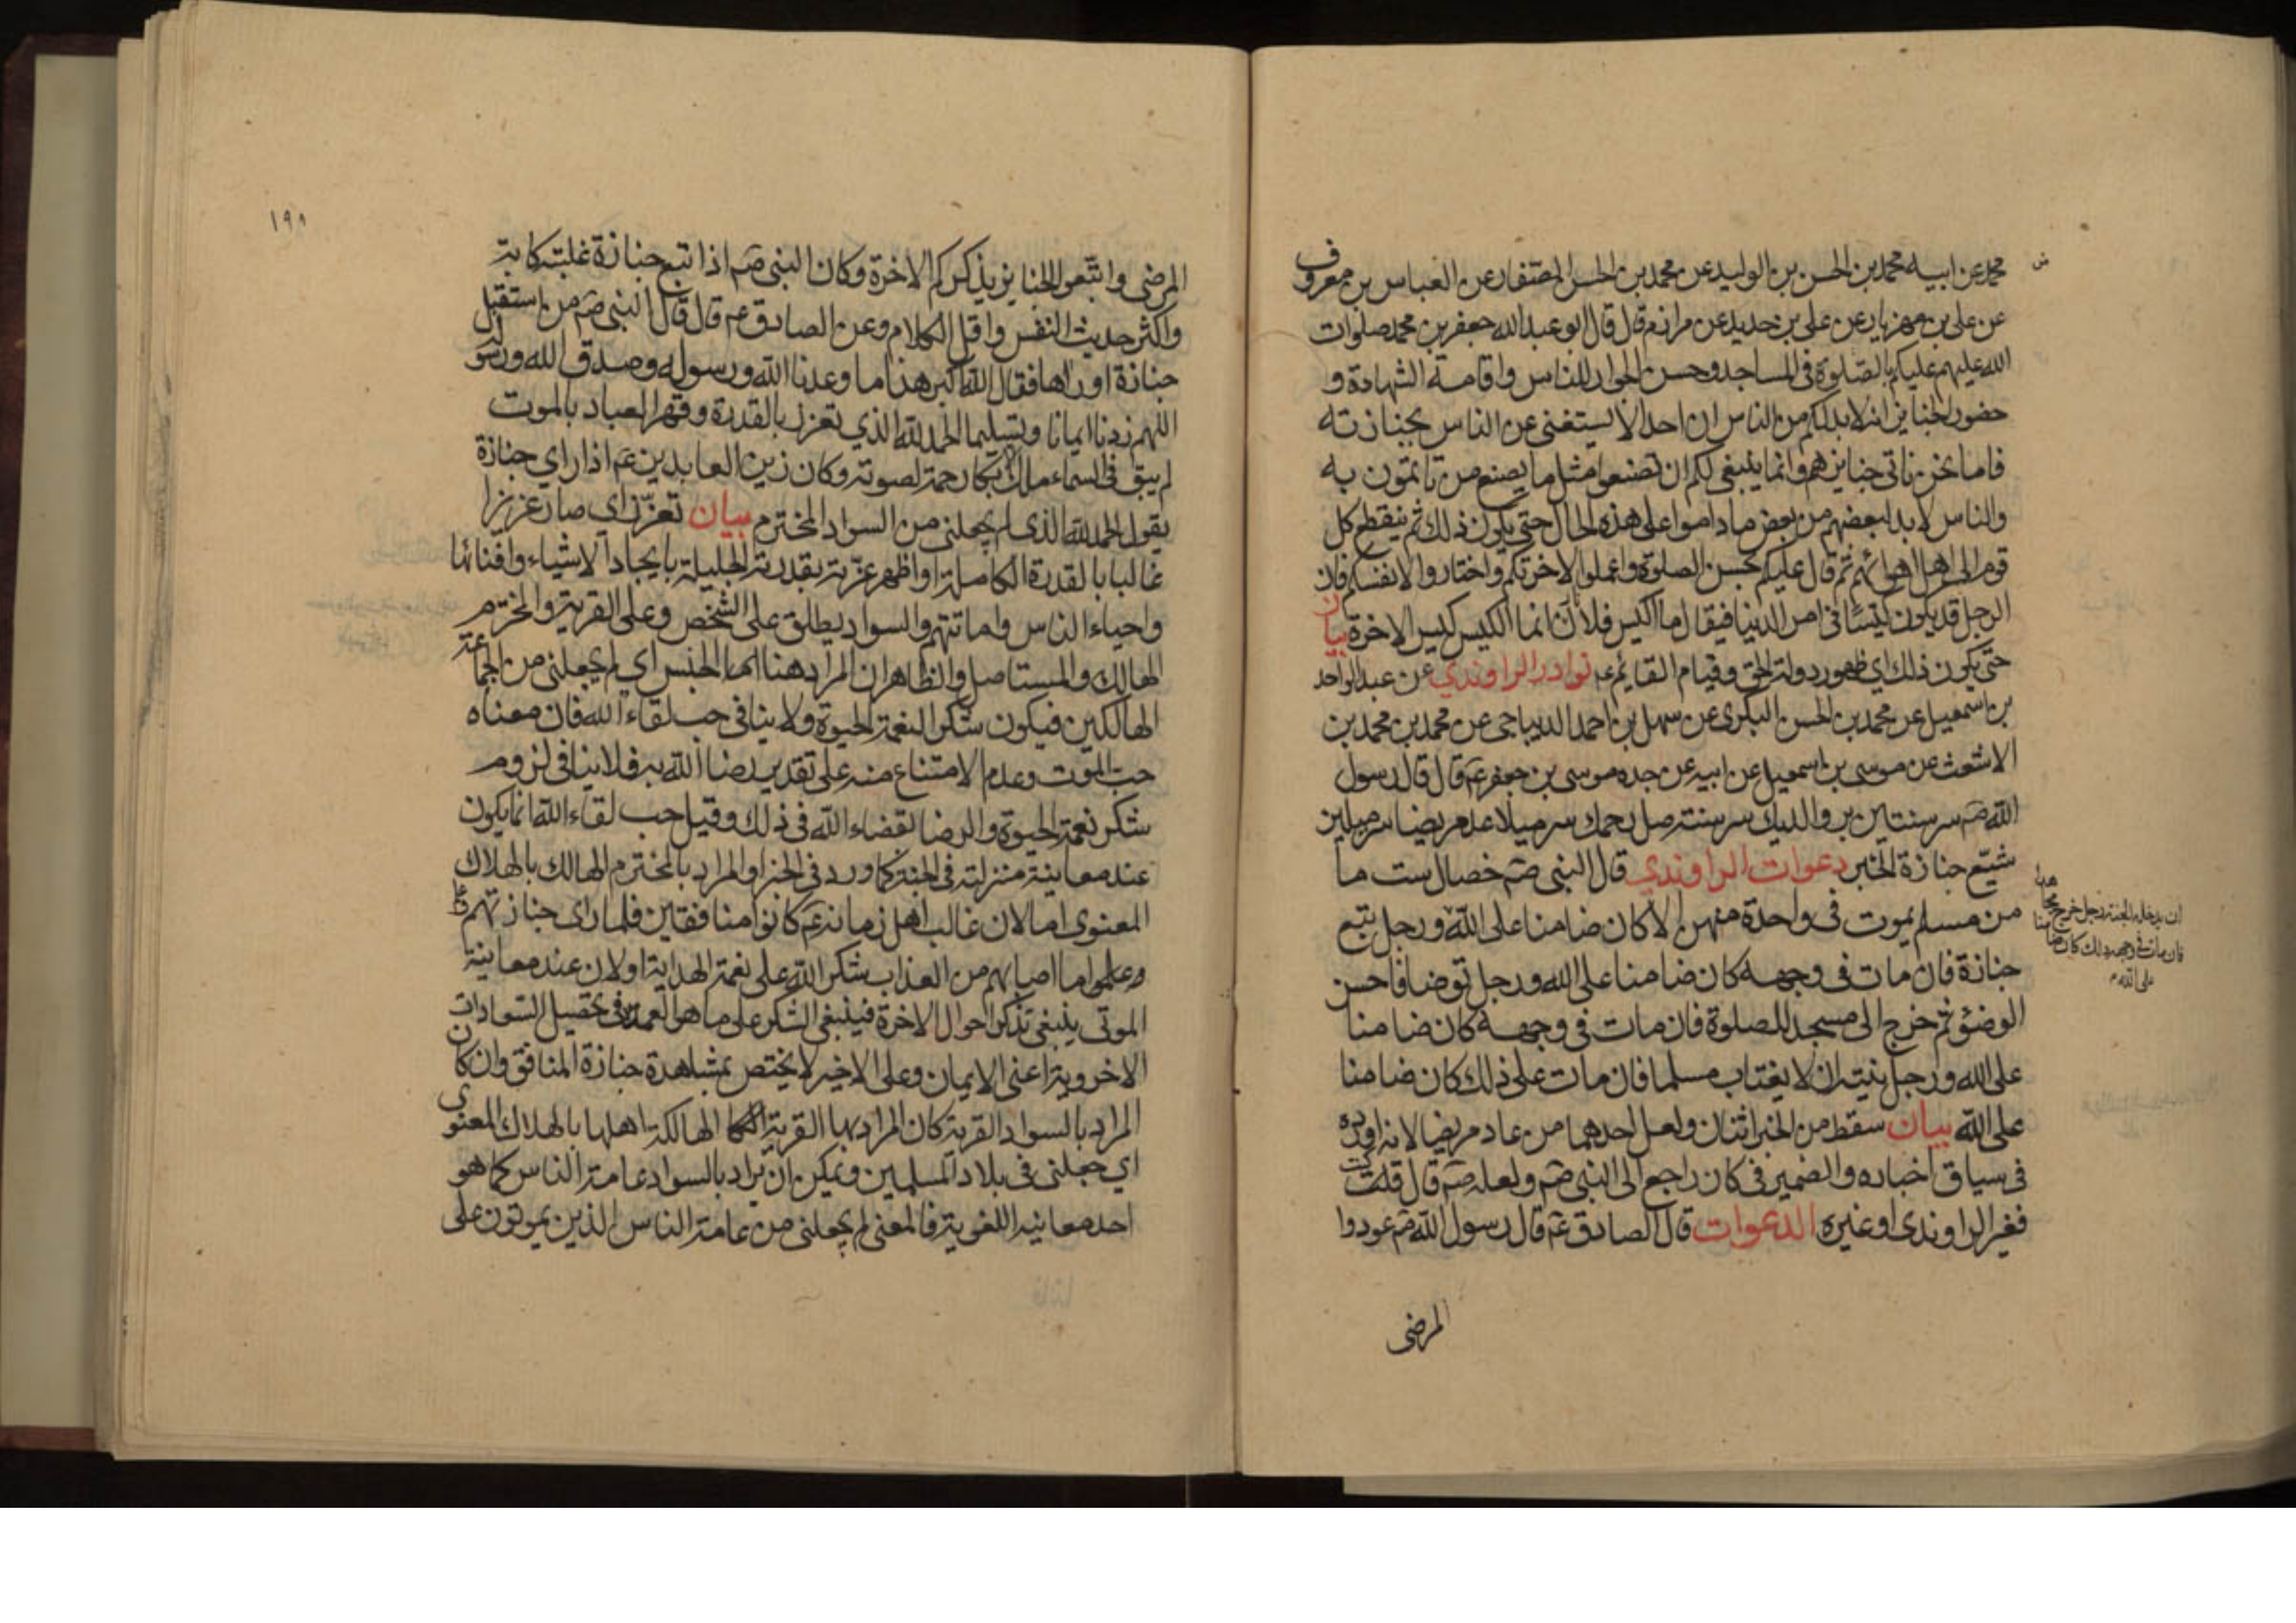 محمد عن ابيه محمد بن الحسن بن الوليد عن محمد بن الحسن الصفار عن العباس بن معروف
عن علي بن مهزيار عن علي بن حديد عن مرازم قال قال ابو عبد الله جعفر بن محمد صلوات
الله عليهم عليكم بالصلوة في المساجد وحسن الجوار للناس واقامة الشهادة و
حضور الجنايز انه لابد لكم من الناس ان احدا لا يستغنى عن الناس بجنازته
فاما نحن ناتي جنايزهم وانما ينبغي لكم ان تصنعوا مثل ما يصنع من تاتمون به
والناس لابد لبعضهم من بعض ما داموا على هذه الحال حتى يكون ذلك ثم ينقطع كل
قوم الى اهل اهوائهم ثم قال عليكم بحسن الصلوة واعملوا لاخرتكم واختاروا لانفسكم فان
الرجل قد يكون كيسا في امر الدنيا فيقال ما اكيس فلانا انما الكيس كيس الاخرة بيان
حتى يكون ذلك اي ظهور دولة الحق وقيام القايم عم نوادر الراوندي عن عبد الواحد
بن اسمعيل عن محمد بن الحسن البكري عن سهل بن احمد الديباجي عن محمد بن محمد بن
الاشعث عن موسى بن اسمعيل عن ابيه عن جده موسى بن جعفر عم قال قال رسول
الله صم سر سنتين بر والديك سر سنة صل رحمك سر ميلا عد مريضا سر ميلين
شيّع جنازة الخبر دعوات الراوندي قال النبي صم خصال ست ما
من مسلم يموت في واحدة منهن الا كان ضامنا على الله ورجل تبع
ان يدخله الجنة رجل خرج مجاهدا
فان مات في وجهه ذلك كان ضامنا
على الله
جنازة فان مات في وجهه كان ضامنا على الله ورجل توضا فاحسن
الوضوء ثم خرج الى مسجد للصلوة فان مات في وجهه كان ضامنا
على الله ورجل نيته ان لا يغتاب مسلما فان مات على ذلك كان ضامنا
على الله بيان سقط من الخبر اثنان ولعل احدهما من عاد مريضا لانه اورده
في سياق اخباره والضمير في كان راجع الى النبي صم ولعله صم قال قلت
فغير الراوندي او غيره الدعوات قال الصادق عم قال رسول الله صم عودوا
المرضى
١٩١
المرضى واتبعوا الجنايز يذكركم الاخرة وكان النبي صم اذا تبع جنازة غلبته كابة
واكثر حديث النفس واقل الكلام وعن الصادق عم قال قال النبي صم من استقبل
جنازة او راها فقال الله اكبر هذا ما وعدنا الله ورسوله وصدق الله ورسوله
اللهم زدنا ايمانا وتسليما الحمد لله الذي تعزز بالقدرة وقهر العباد بالموت
لم يبق في السماء ملك الا بكا رحمة لصوته وكان زين العابدين عم اذا راي جنازة
يقول الحمد لله الذي لم يجعلني من السواد المخترم بيان تعزز اي صار عزيزا
غالبا بالقدرة الكاملة او اظهر عزته بقدرته الجليلة بايجاد الاشياء وافنائها
واحياء الناس واماتتهم والسواد يطلق على الشخص وعلى القرية والمخترم
الهالك والمستاصل والظاهر ان المراد هنا اما الجنس اي لم يجعلني من الجماعة
الهالكين فيكون شكر النعمة الحيوة ولا ينافي حب لقاء الله فان معناه
حب الموت وعدم الامتناع منه على تقدير رضا الله به فلا ينافي لزوم
شكر نعمة الحيوة والرضا بقضاء الله في ذلك وقيل حب لقاء الله انما يكون
عند معاينة منزلته في الجنة كما ورد في الخبر او المراد بالمخترم الهالك بالهلاك
المعنوي اما لان غالب اهل زمانه عم كانوا منافقين فلما راى جنازتهم
وعلموا ما اصابهم من العذاب شكر الله على نعمة الهداية او لان عند معاينة
الموتى ينبغي تذكر احوال الاخرة فينبغي الشكر على ما هو العمدة في تحصيل السعادات
الاخروية اعني الايمان وعلى الاخير لا يختص بمشاهدة جنازة المنافق وان كان
المراد بالسواد القرية كان المراد بها القرية الهالكة اهلها بالهلاك المعنوي
اي جعلني في بلاد المسلمين ويمكن ان يراد بالسواد عامة الناس كما هو
احد معانيه اللغوية فالمعنى لم يجعلني من عامة الناس الذين يموتون على